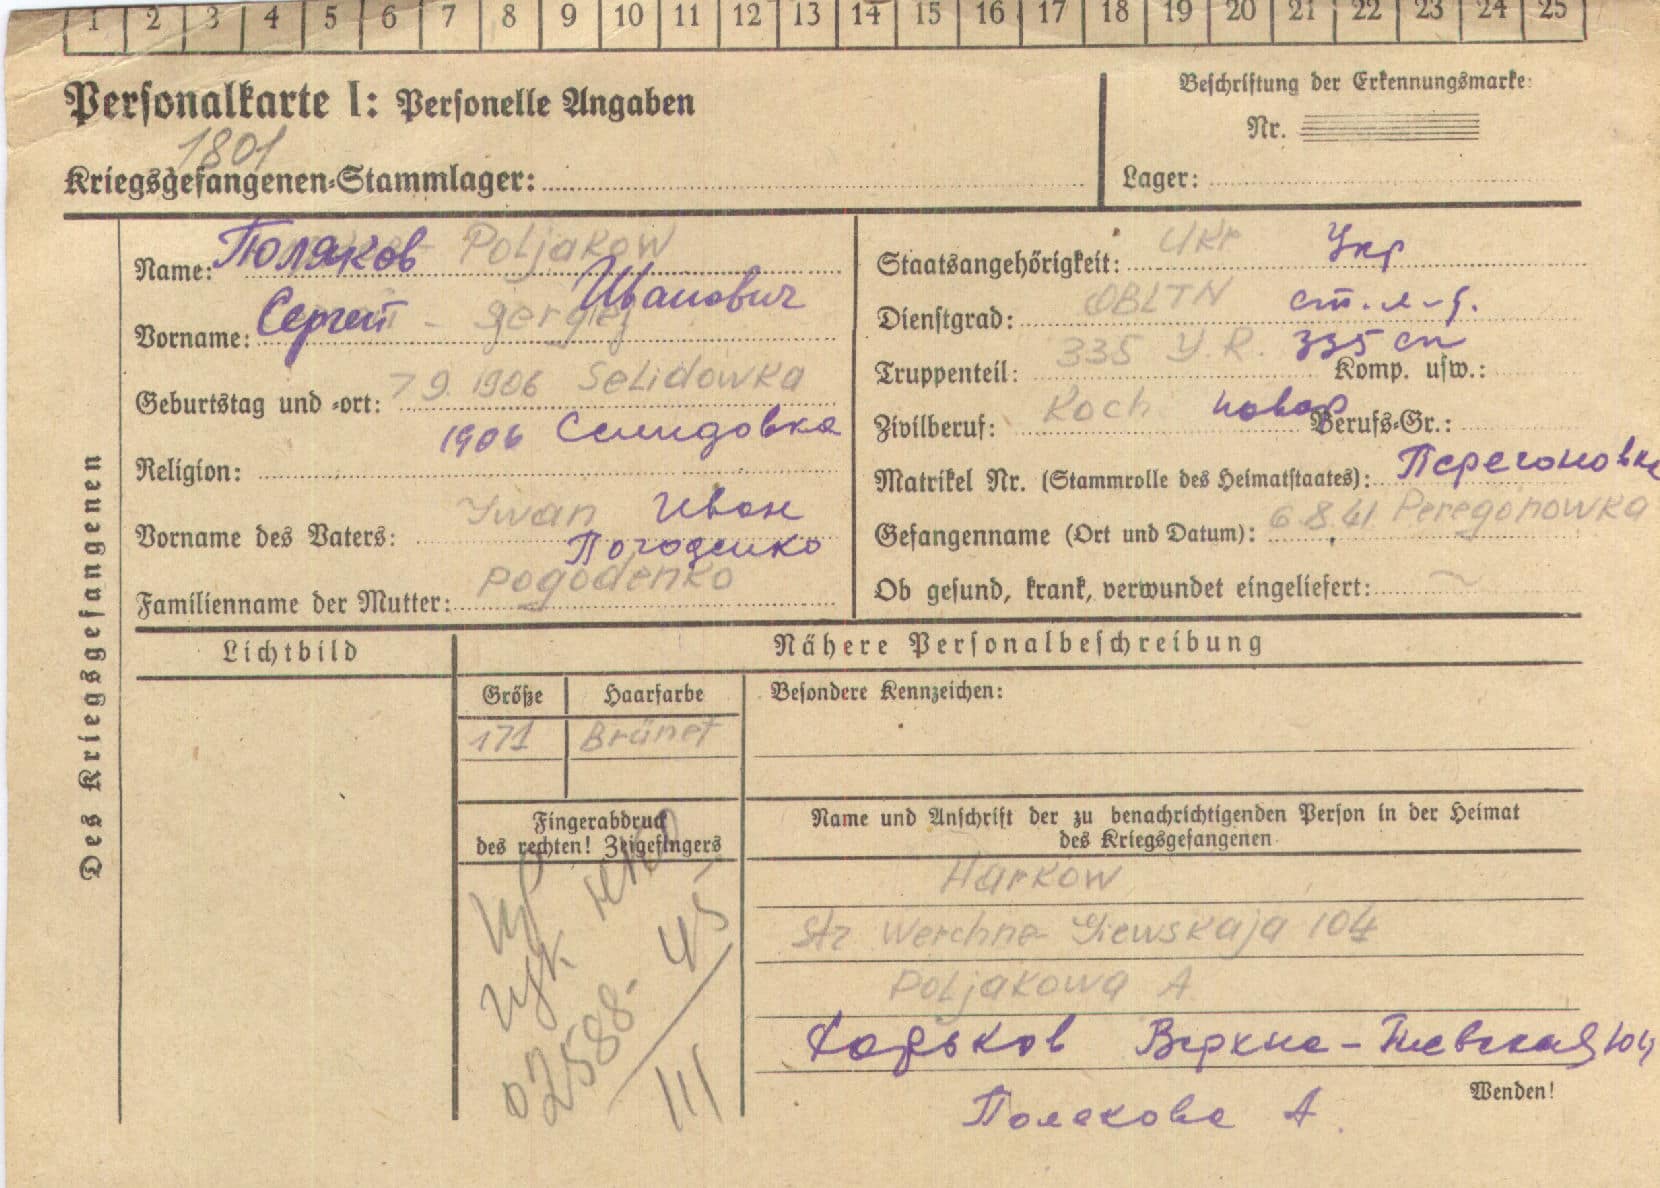 1 2 3 4 5 6 7 8 9 10 11 12 13 14 15 16 17 18 19 20 21 22 23 24 25
Personalkarte I: Personelle Angaben
1801
Kriegsgefangenen-Stammlager:
Beschriftung der Erkennungsmarke:
Nr.
Lager:
Des Kriegsgefangenen
Name: Поляков Poljakow
Vorname: Сергей Sergiej Иванович
Geburtstag und -ort: 7 9. 1906 Selidowka
1906 Селидовка
Religion:
Vorname des Vaters: Iwan Иван
Погоденко
Familienname der Mutter: Pogodenko
Staatsangehörigkeit: Ukr Укр
Dienstgrad: OBLTN ст. л-т.
Truppenteil: 335 J.R. 335 сп Komp. usw.:
Zivilberuf: Koch повар Berufs-Gr.:
Matrikel Nr. (Stammrolle des Heimatstaates): Перегоновка
Gefangenname (Ort und Datum): 6.8.41 Peregonowka
Ob gesund, krank, verwundet eingeliefert:
Lichtbild
Nähere Personalbeschreibung
Größe Haarfarbe
171 Brünet
Besondere Kennzeichen:
Fingerabdruck
des rechten! Zeigefingers
02588-45
III
Name und Anschrift der zu benachrichtigenden Person in der Heimat
des Kriegsgefangenen
Harkow
Str Werchne- Giewskaja 104
Poljakowa A
Харьков Верхне-Гиевская 104
Полякова А.
Wenden!